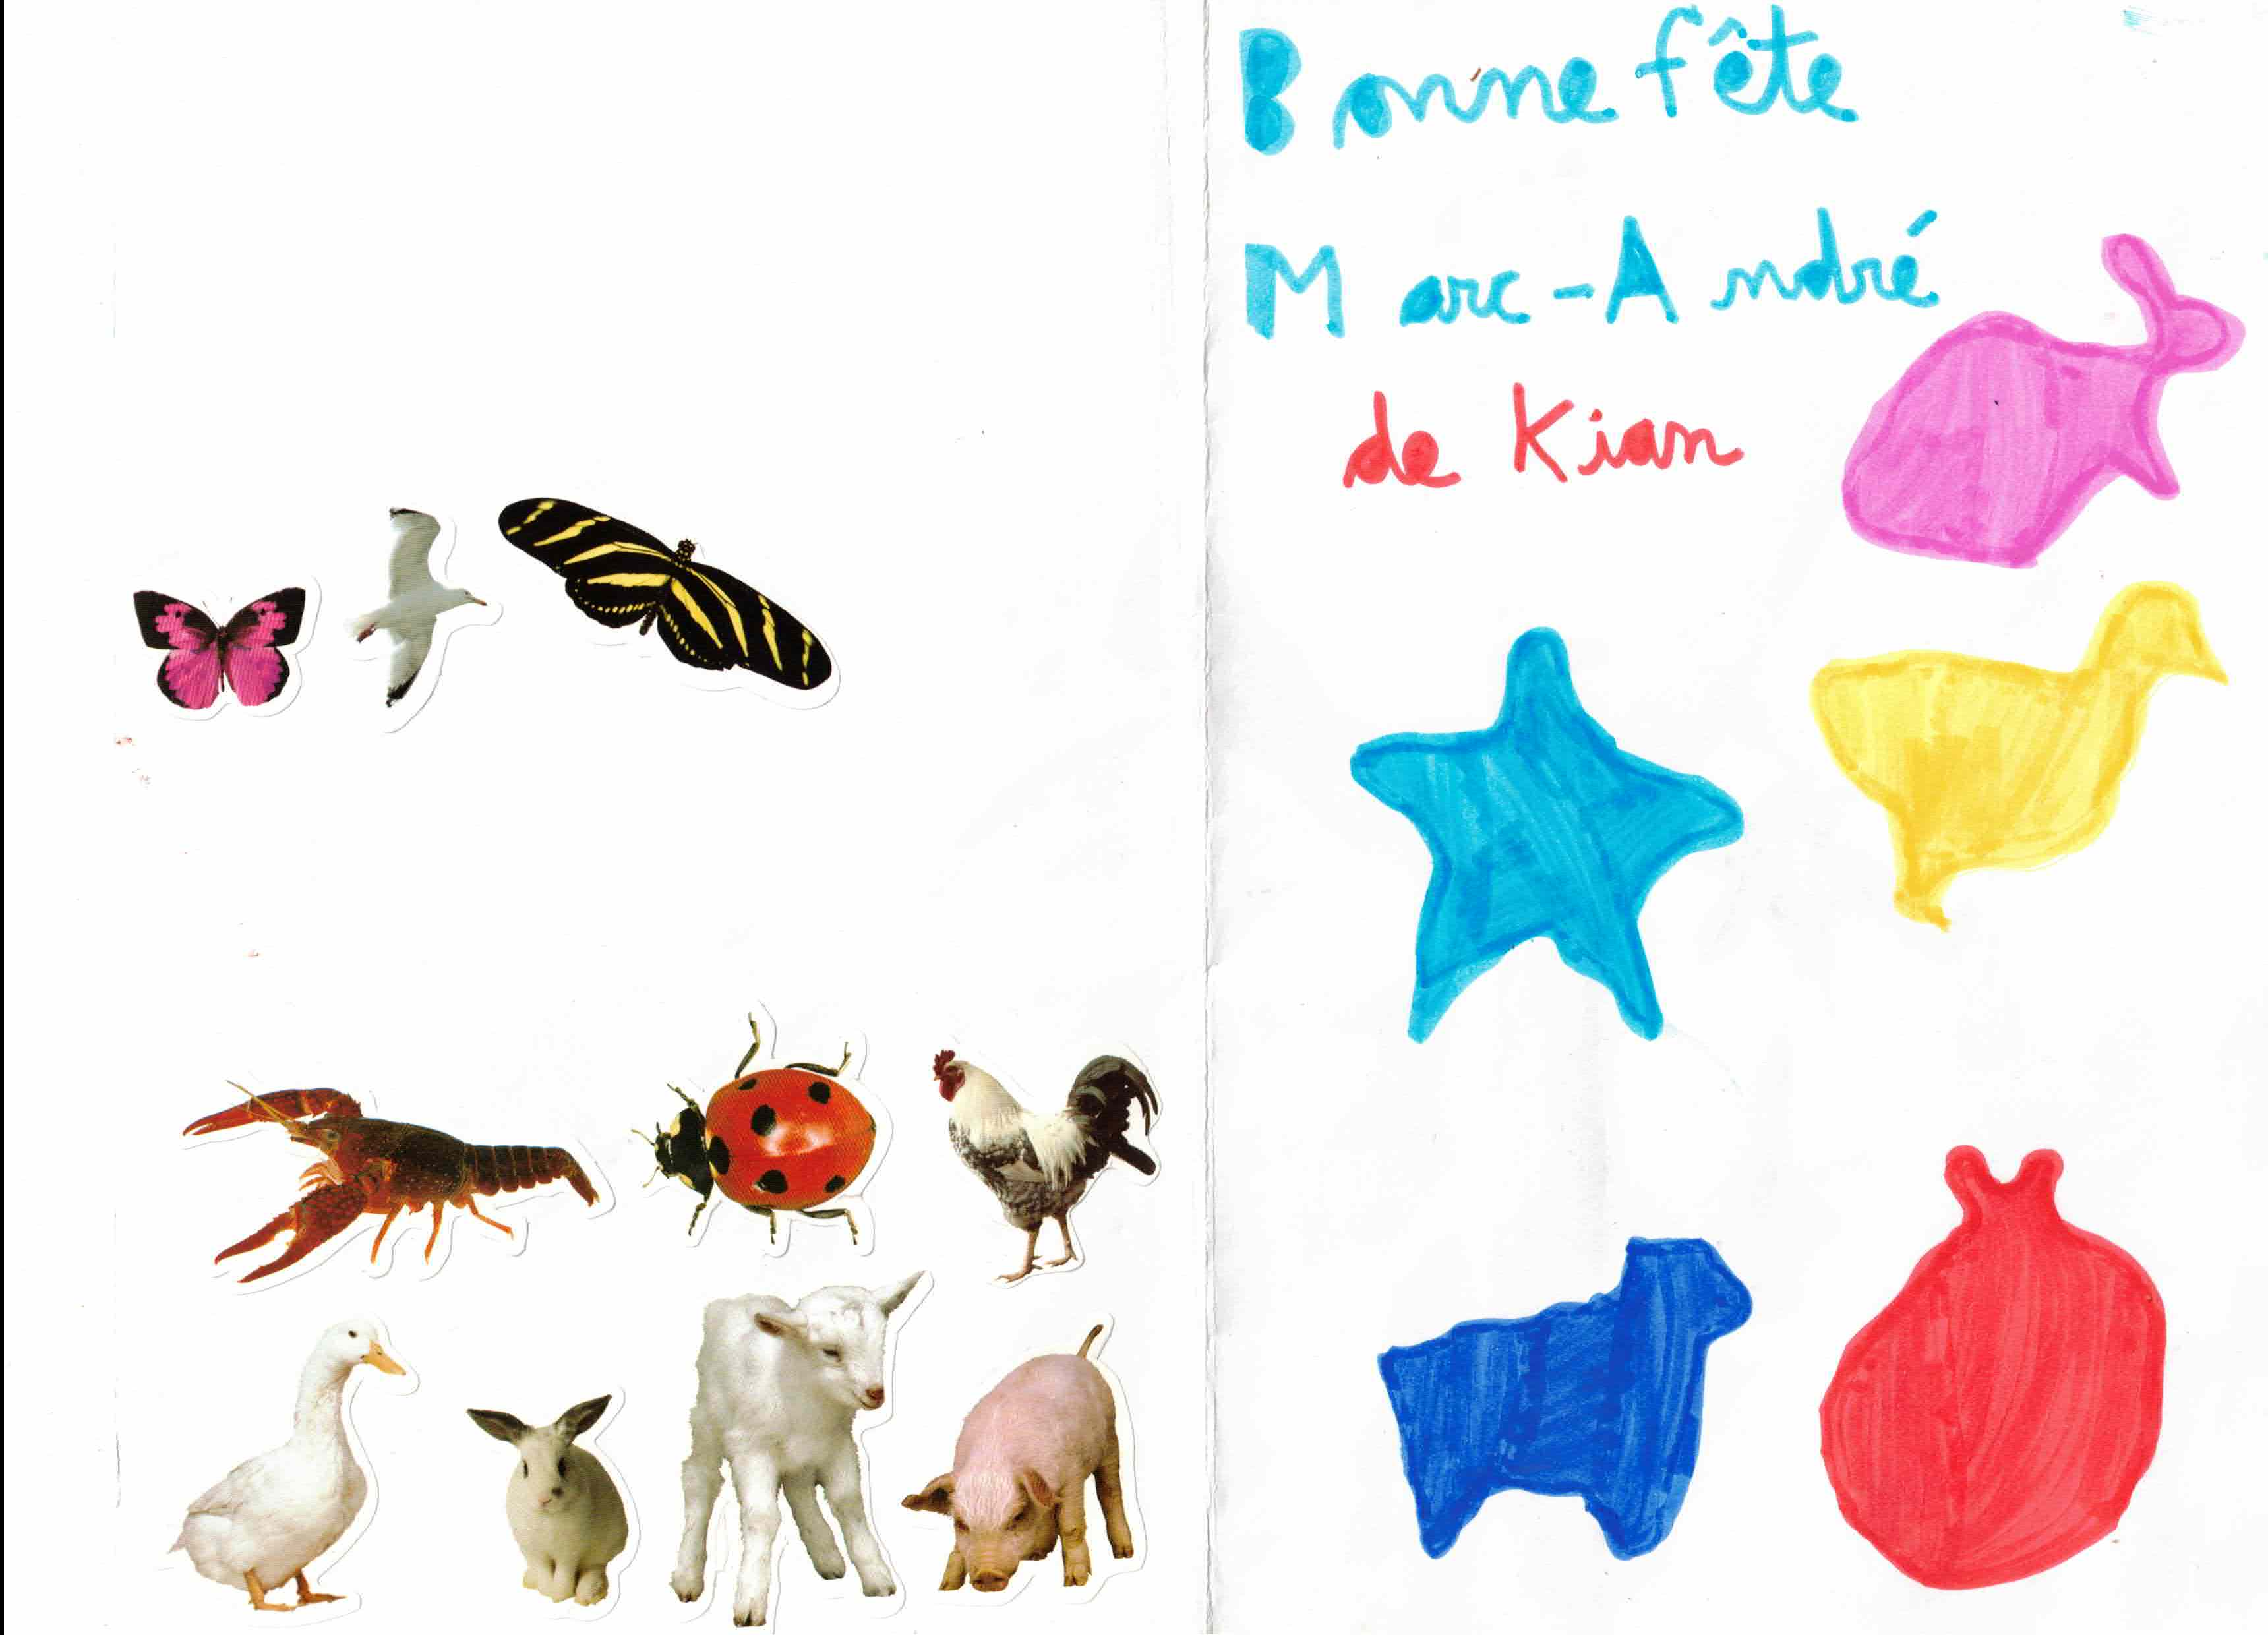 Bonne fête
Marc-André
de Kian